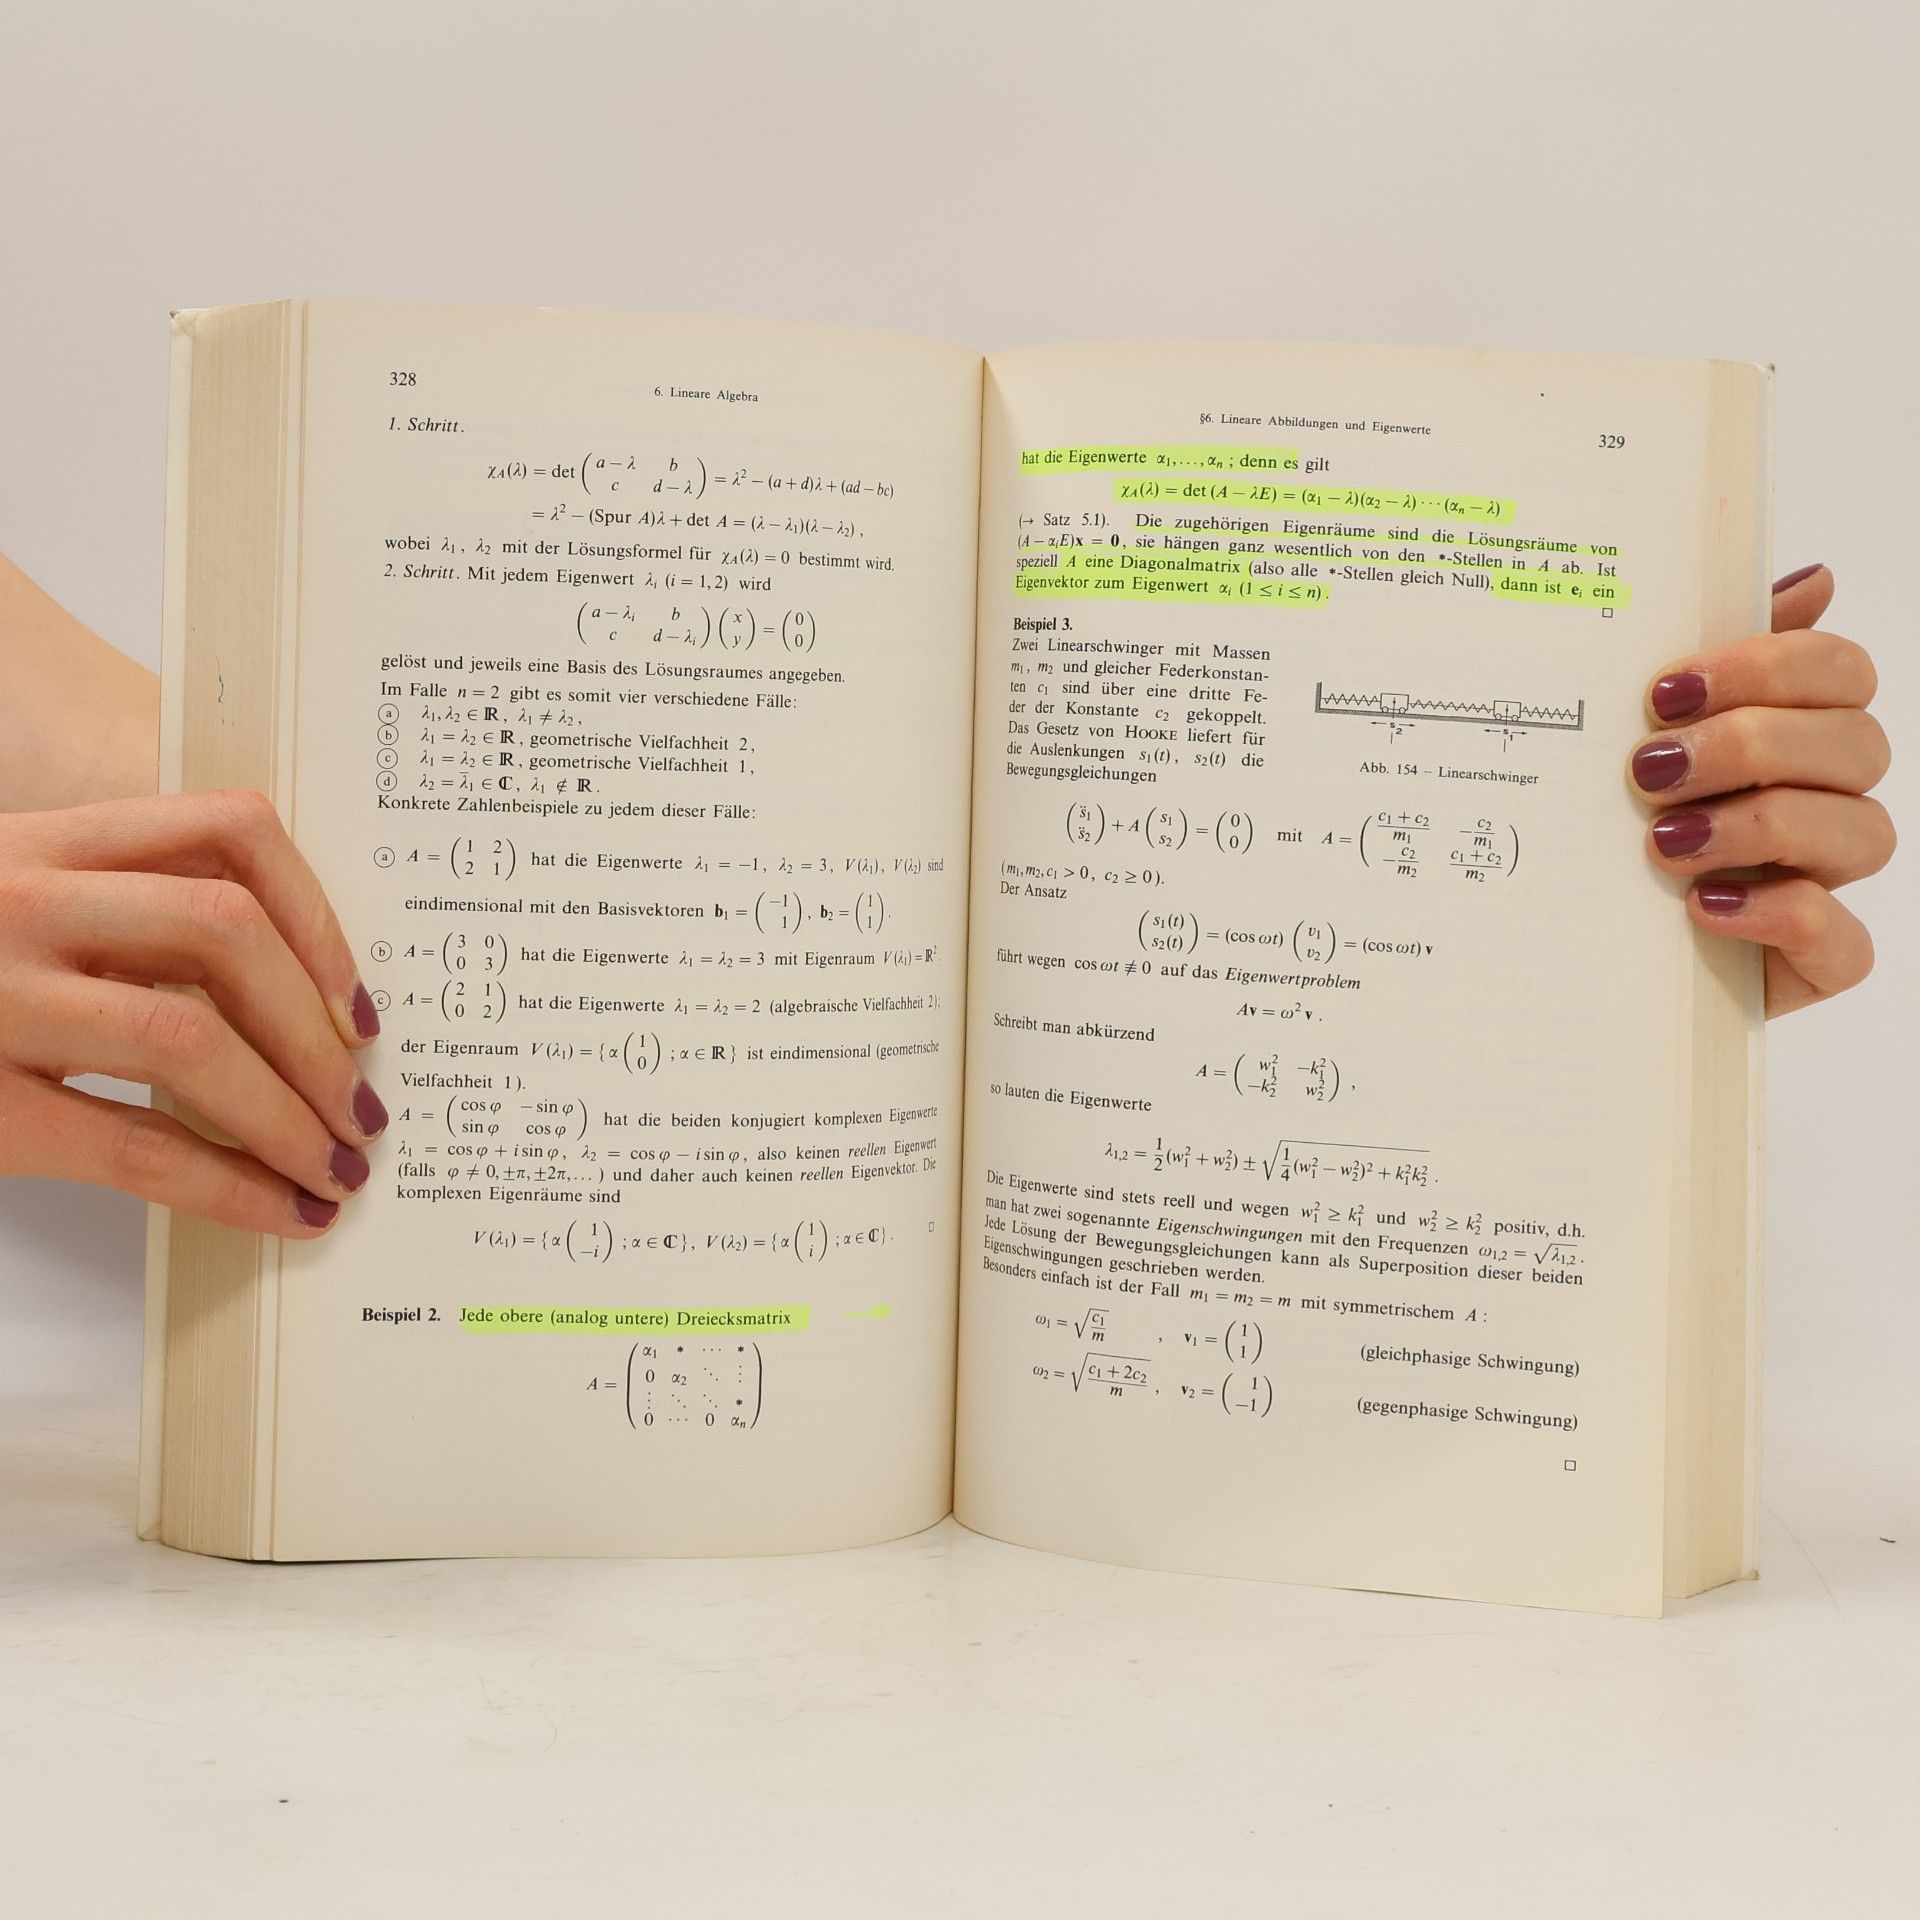 328
6. Lineare Algebra
1. Schritt.
χ_A(λ) = det ( a − λ b ; c d − λ ) = λ² − (a + d)λ + (ad − bc)
= λ² − (Spur A)λ + det A = (λ − λ₁)(λ − λ₂) ,
wobei λ₁, λ₂ mit der Lösungsformel für χ_A(λ) = 0 bestimmt wird.
2. Schritt. Mit jedem Eigenwert λᵢ (i = 1,2) wird
( a − λᵢ b ; c d − λᵢ ) ( x ; y ) = ( 0 ; 0 )
gelöst und jeweils eine Basis des Lösungsraumes angegeben.
Im Falle n = 2 gibt es somit vier verschiedene Fälle:
ⓐ λ₁, λ₂ ∈ ℝ, λ₁ ≠ λ₂ ,
ⓑ λ₁ = λ₂ ∈ ℝ, geometrische Vielfachheit 2,
ⓒ λ₁ = λ₂ ∈ ℝ, geometrische Vielfachheit 1,
ⓓ λ₂ = λ̄₁ ∈ ℂ, λ₁ ∉ ℝ.
Konkrete Zahlenbeispiele zu jedem dieser Fälle:
ⓐ A = ( 1 2 ; 2 1 ) hat die Eigenwerte λ₁ = −1, λ₂ = 3, V(λ₁), V(λ₂) sind
eindimensional mit den Basisvektoren b₁ = ( −1 ; 1 ), b₂ = ( 1 ; 1 ).
ⓑ A = ( 3 0 ; 0 3 ) hat die Eigenwerte λ₁ = λ₂ = 3 mit Eigenraum V(λ₁) = ℝ².
ⓒ A = ( 2 1 ; 0 2 ) hat die Eigenwerte λ₁ = λ₂ = 2 (algebraische Vielfachheit 2);
der Eigenraum V(λ₁) = { α ( 1 ; 0 ) ; α ∈ ℝ } ist eindimensional (geometrische
Vielfachheit 1).
A = ( cos φ −sin φ ; sin φ cos φ ) hat die beiden konjugiert komplexen Eigenwerte
λ₁ = cos φ + i sin φ, λ₂ = cos φ − i sin φ, also keinen reellen Eigenwert
(falls φ ≠ 0, ±π, ±2π, ...) und daher auch keinen reellen Eigenvektor. Die
komplexen Eigenräume sind
V(λ₁) = { α ( 1 ; −i ) ; α ∈ ℂ }, V(λ₂) = { α ( 1 ; i ) ; α ∈ ℂ }. □
Beispiel 2. Jede obere (analog untere) Dreiecksmatrix
A = ( α₁ * ⋯ * ; 0 α₂ ⋱ ⋮ ; ⋮ ⋱ ⋱ * ; 0 ⋯ 0 αₙ )
§6. Lineare Abbildungen und Eigenwerte
329
hat die Eigenwerte α₁, ..., αₙ ; denn es gilt
χ_A(λ) = det (A − λE) = (α₁ − λ)(α₂ − λ) ⋯ (αₙ − λ)
(→ Satz 5.1). Die zugehörigen Eigenräume sind die Lösungsräume von
(A − αᵢE)x = 0, sie hängen ganz wesentlich von den *-Stellen in A ab. Ist
speziell A eine Diagonalmatrix (also alle *-Stellen gleich Null), dann ist eᵢ ein
Eigenvektor zum Eigenwert αᵢ (1 ≤ i ≤ n).
□
Beispiel 3.
Zwei Linearschwinger mit Massen
m₁, m₂ und gleicher Federkonstan-
ten c₁ sind über eine dritte Fe-
der der Konstante c₂ gekoppelt.
Das Gesetz von HOOKE liefert für
die Auslenkungen s₁(t), s₂(t) die
Bewegungsgleichungen
s₂
s₁
Abb. 154 – Linearschwinger
( s̈₁ ; s̈₂ ) + A ( s₁ ; s₂ ) = ( 0 ; 0 ) mit A = ( (c₁ + c₂)/m₁ −c₂/m₁ ; −c₂/m₂ (c₁ + c₂)/m₂ )
(m₁, m₂, c₁ > 0, c₂ ≥ 0).
Der Ansatz
( s₁(t) ; s₂(t) ) = (cos ωt) ( v₁ ; v₂ ) = (cos ωt) v
führt wegen cos ωt ≢ 0 auf das Eigenwertproblem
Av = ω² v .
Schreibt man abkürzend
A = ( w₁² −k₁² ; −k₂² w₂² ) ,
so lauten die Eigenwerte
λ₁,₂ = 1/2 (w₁² + w₂²) ± √( 1/4 (w₁² − w₂²)² + k₁²k₂² ) .
Die Eigenwerte sind stets reell und wegen w₁² ≥ k₁² und w₂² ≥ k₂² positiv, d.h.
man hat zwei sogenannte Eigenschwingungen mit den Frequenzen ω₁,₂ = √λ₁,₂ .
Jede Lösung der Bewegungsgleichungen kann als Superposition dieser beiden
Eigenschwingungen geschrieben werden.
Besonders einfach ist der Fall m₁ = m₂ = m mit symmetrischem A :
ω₁ = √(c₁/m) , v₁ = ( 1 ; 1 ) (gleichphasige Schwingung)
ω₂ = √((c₁ + 2c₂)/m) , v₂ = ( 1 ; −1 ) (gegenphasige Schwingung)
□